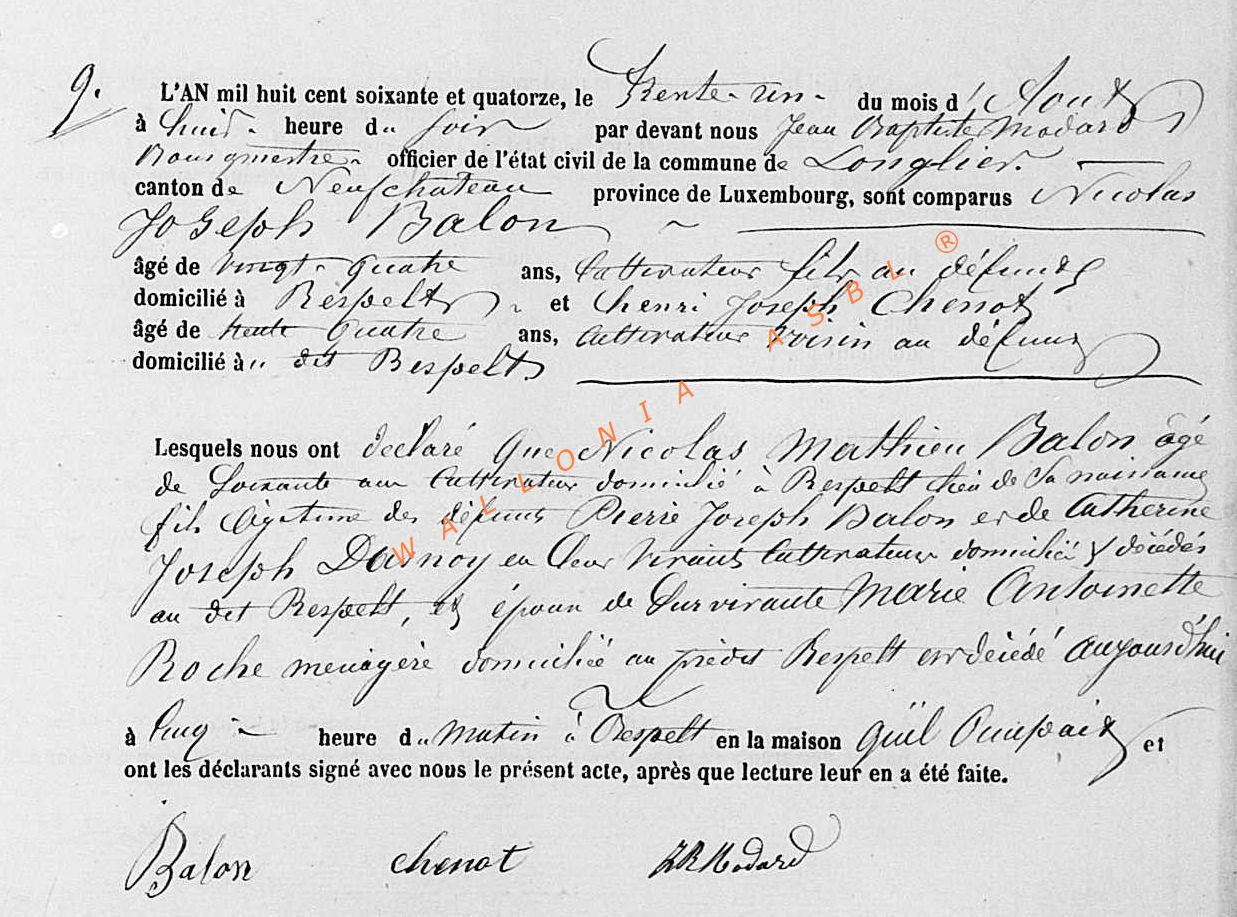 9.
L'AN mil huit cent soixante et quatorze, le Trente-un du mois d'Aout
à huit heure du soir par devant nous Jean Baptiste Modard
Bourgmestre officier de l'état civil de la commune de Longlier
canton de Neufchateau province de Luxembourg, sont comparus Nicolas
Joseph Balon
âgé de vingt-quatre ans, Cultivateur fils au défunt
domicilié à Respelt et Henri Joseph Chenot
âgé de trente quatre ans, cultivateur voisin au défunt
domicilié à dit Respelt
Lesquels nous ont declaré que Nicolas Mathieu Balon âgé
de Soixante ans Cultivateur domicilié à Respelt lieu de sa naissance
fils légitime des défunts Pierre Joseph Balon et de Catherine
Joseph Dasnoy en leur vivant Cultivateurs domiciliés y décédés
au dit Respelt, et époux de Survivante Marie Antoinette
Roche menagère domiciliée au prédit Respelt est décédé aujourd'hui
à Cinq heure du Matin à Respelt en la maison qu'il Occupait et
ont les déclarants signé avec nous le présent acte, après que lecture leur en a été faite.
Balon chenot JB Modard
WALLONIA ASBL ®